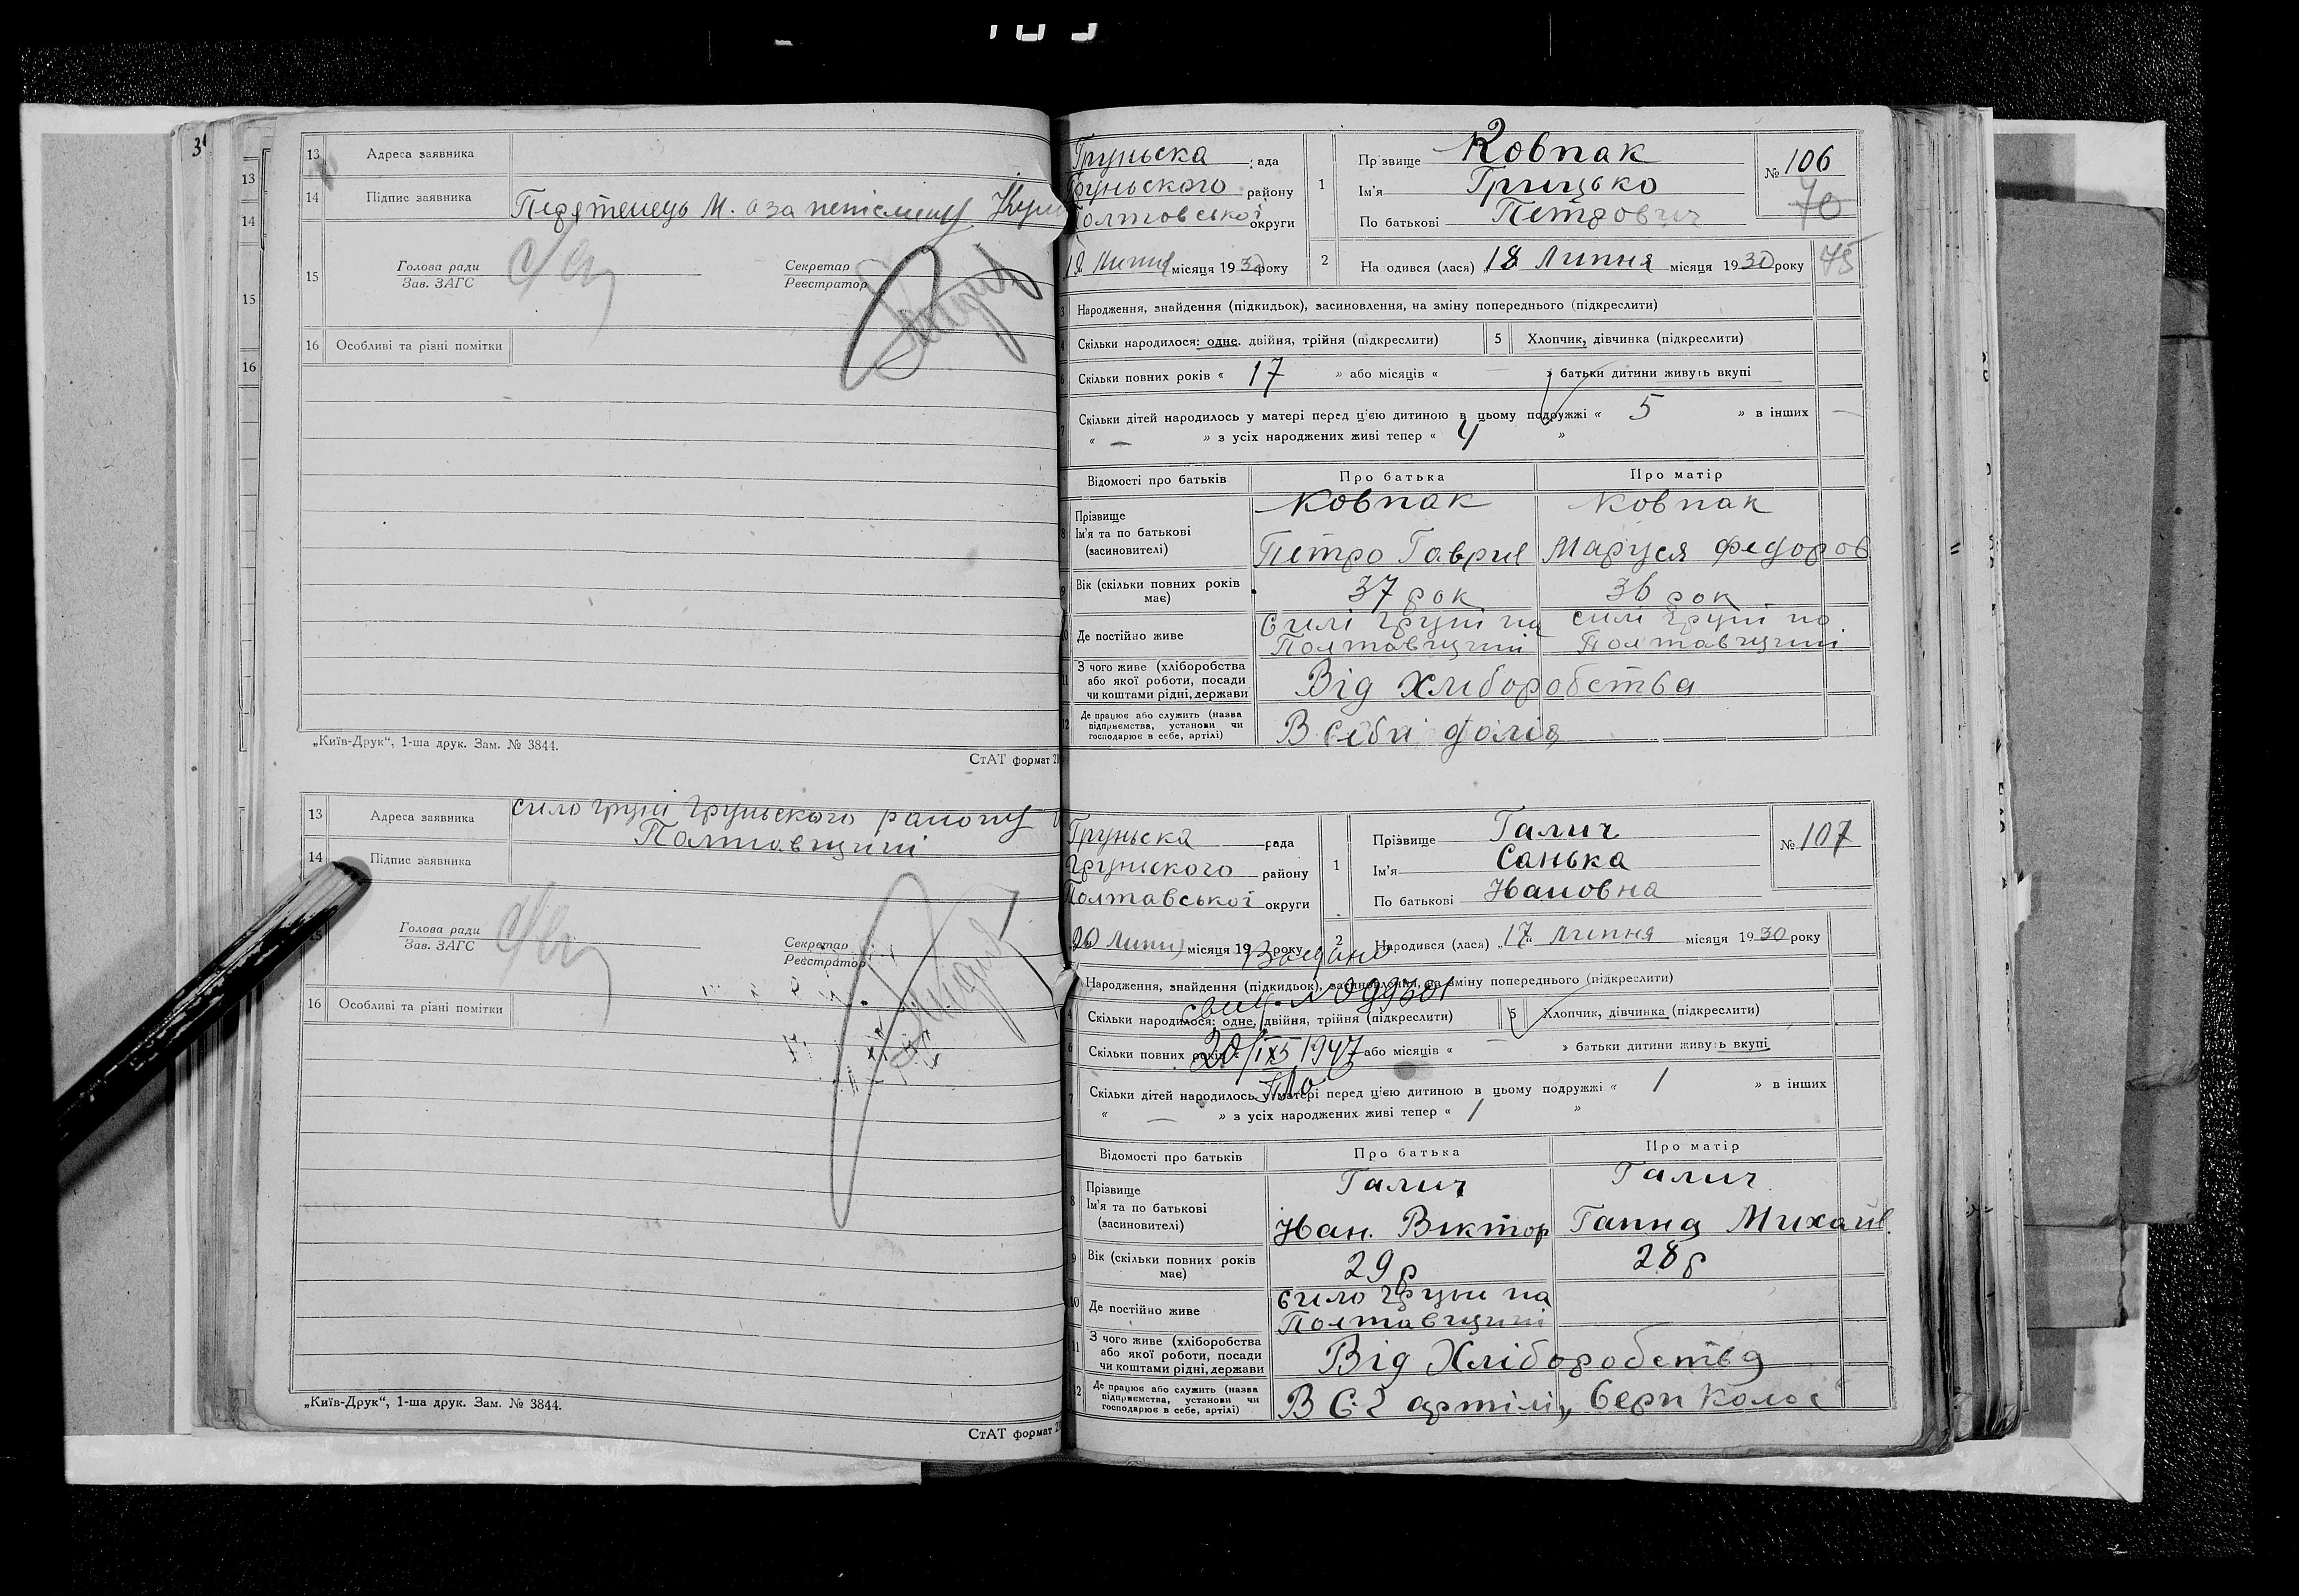 13 Адреса заявника
14 Підпис заявника
15 Голова ради
Зав. ЗАГС
Секретар
Реєстратор
16 Особливі та різні помітки
„Київ-Друк“, 1-ша друк. Зам. № 3844.
СтАТ формат
13 Адреса заявника село груні Груньского району
Полтавщини
14 Підпис заявника
Голова ради
Зав. ЗАГС
Секретар
Реєстратор
16 Особливі та різні помітки
„Київ-Друк“, 1-ша друк. Зам. № 3844.
СтАТ формат
Груньска рада
Груньского району
Полтовської округи
місяця 1930 року
1 Прізвище Ковпак
Ім'я Грицько
По батькові Петрович
№ 106
70
75
2 Народився (лася) 18 Липня місяця 1930 року
3 Народження, знайдення (підкидьок), засиновлення, на зміну попереднього (підкреслити)
4 Скільки народилося: одне, двійня, трійня (підкреслити) 5 Хлопчик, дівчинка (підкреслити)
6 Скільки повних років « 17 » або місяців « — » батьки дитини живуть вкупі
7 Скільки дітей народилось у матері перед цією дитиною в цьому подружжі « 5 » в інших —
« — » з усіх народжених живі тепер « 4 »
Відомості про батьків Про батька Про матір
8 Прізвище Ковпак Ковпак
Ім'я та по батькові
(засиновителі) Петро Гаврил Маруся Федоров
9 Вік (скільки повних років має) 37 рок 36 рок
10 Де постійно живе Селі Груні на Полтавщині селі Груні на Полтавщині
11 З чого живе (хліборобства
або якої роботи, посади
чи коштами рідні, держави Від Хліборобства
12 Де працює або служить (назва
підприємства, установи чи
господарює в себе, артілі) В себе
Груньска рада
Груньского району
Полтавської округи
20 Липня місяця 19 року
1 Прізвище Галич
Ім'я Санька
По батькові Ивановна
№ 107
2 Народився (лася) „17“ Липня місяця 1930 року
Видано
Народження, знайдення (підкидьок), засиновлення, на зміну попереднього (підкреслити)
4 Скільки народилося: одне, двійня, трійня (підкреслити) 5 Хлопчик, дівчинка (підкреслити)
6 Скільки повних років 20/IX 1947 або місяців « — » батьки дитини живуть вкупі
7 Скільки дітей народилось у матері перед цією дитиною в цьому подружжі « 1 » в інших
« — » з усіх народжених живі тепер « 1 »
Відомості про батьків Про батька Про матір
8 Прізвище Галич Галич
Ім'я та по батькові
(засиновителі) Иван. Виктор Ганна Михаил.
9 Вік (скільки повних років має) 29 р 28 р
10 Де постійно живе село Груні на
Полтавщині
11 З чого живе (хліборобства
або якої роботи, посади
чи коштами рідні, держави Від Хліборобства
12 Де працює або служить (назва
підприємства, установи чи
господарює в себе, артілі) В С.Г артілі